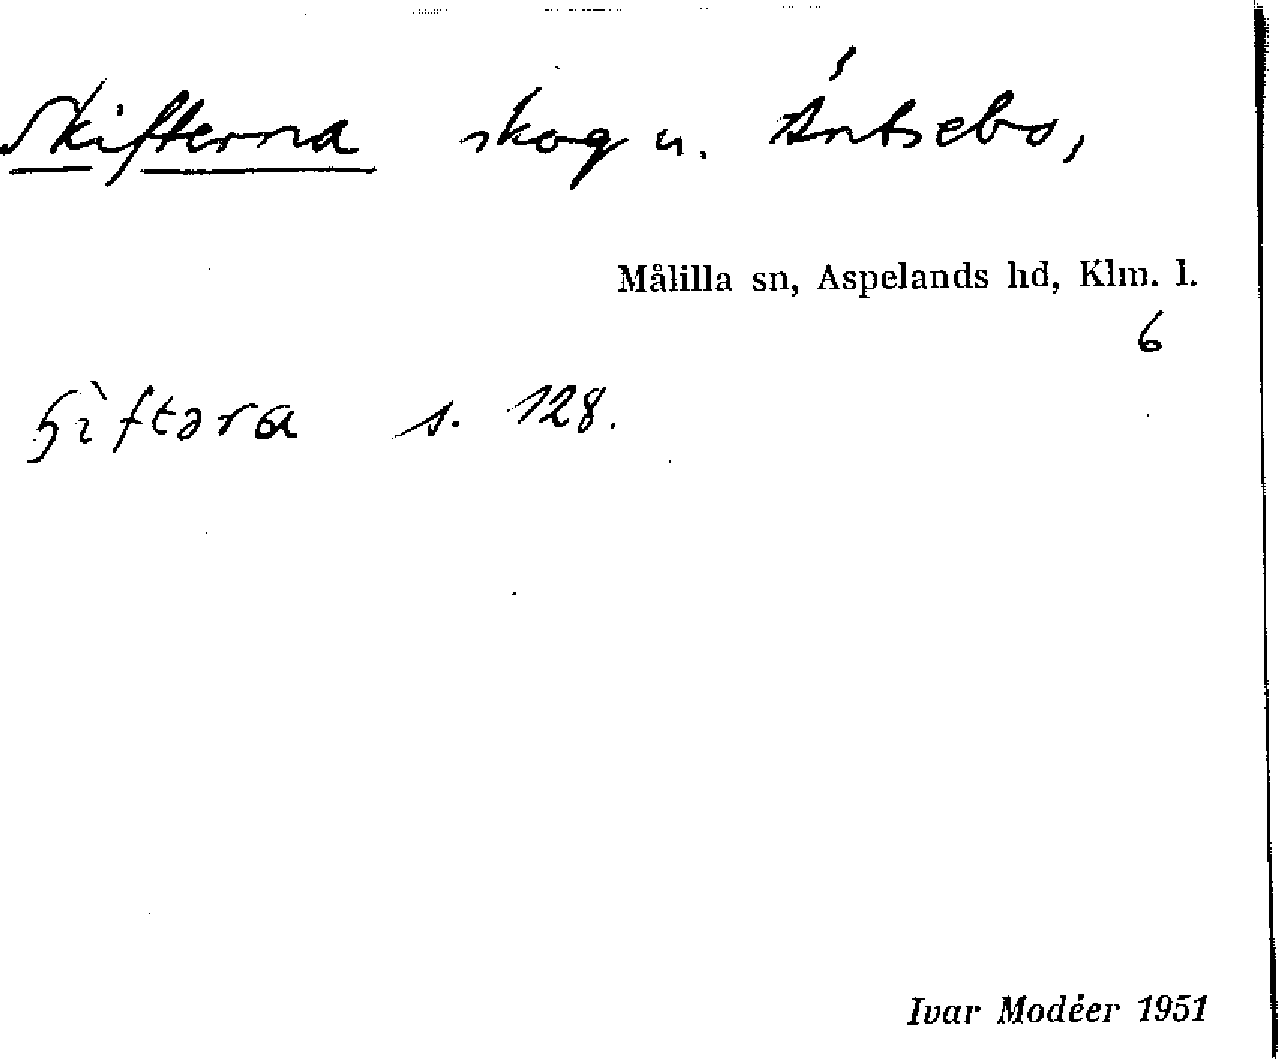 Skifterna skog u. Äntsebo,
Målilla sn, Aspelands hd, Klm. l.
6
ɧìftəra s. 128.
Ivar Modéer 1951